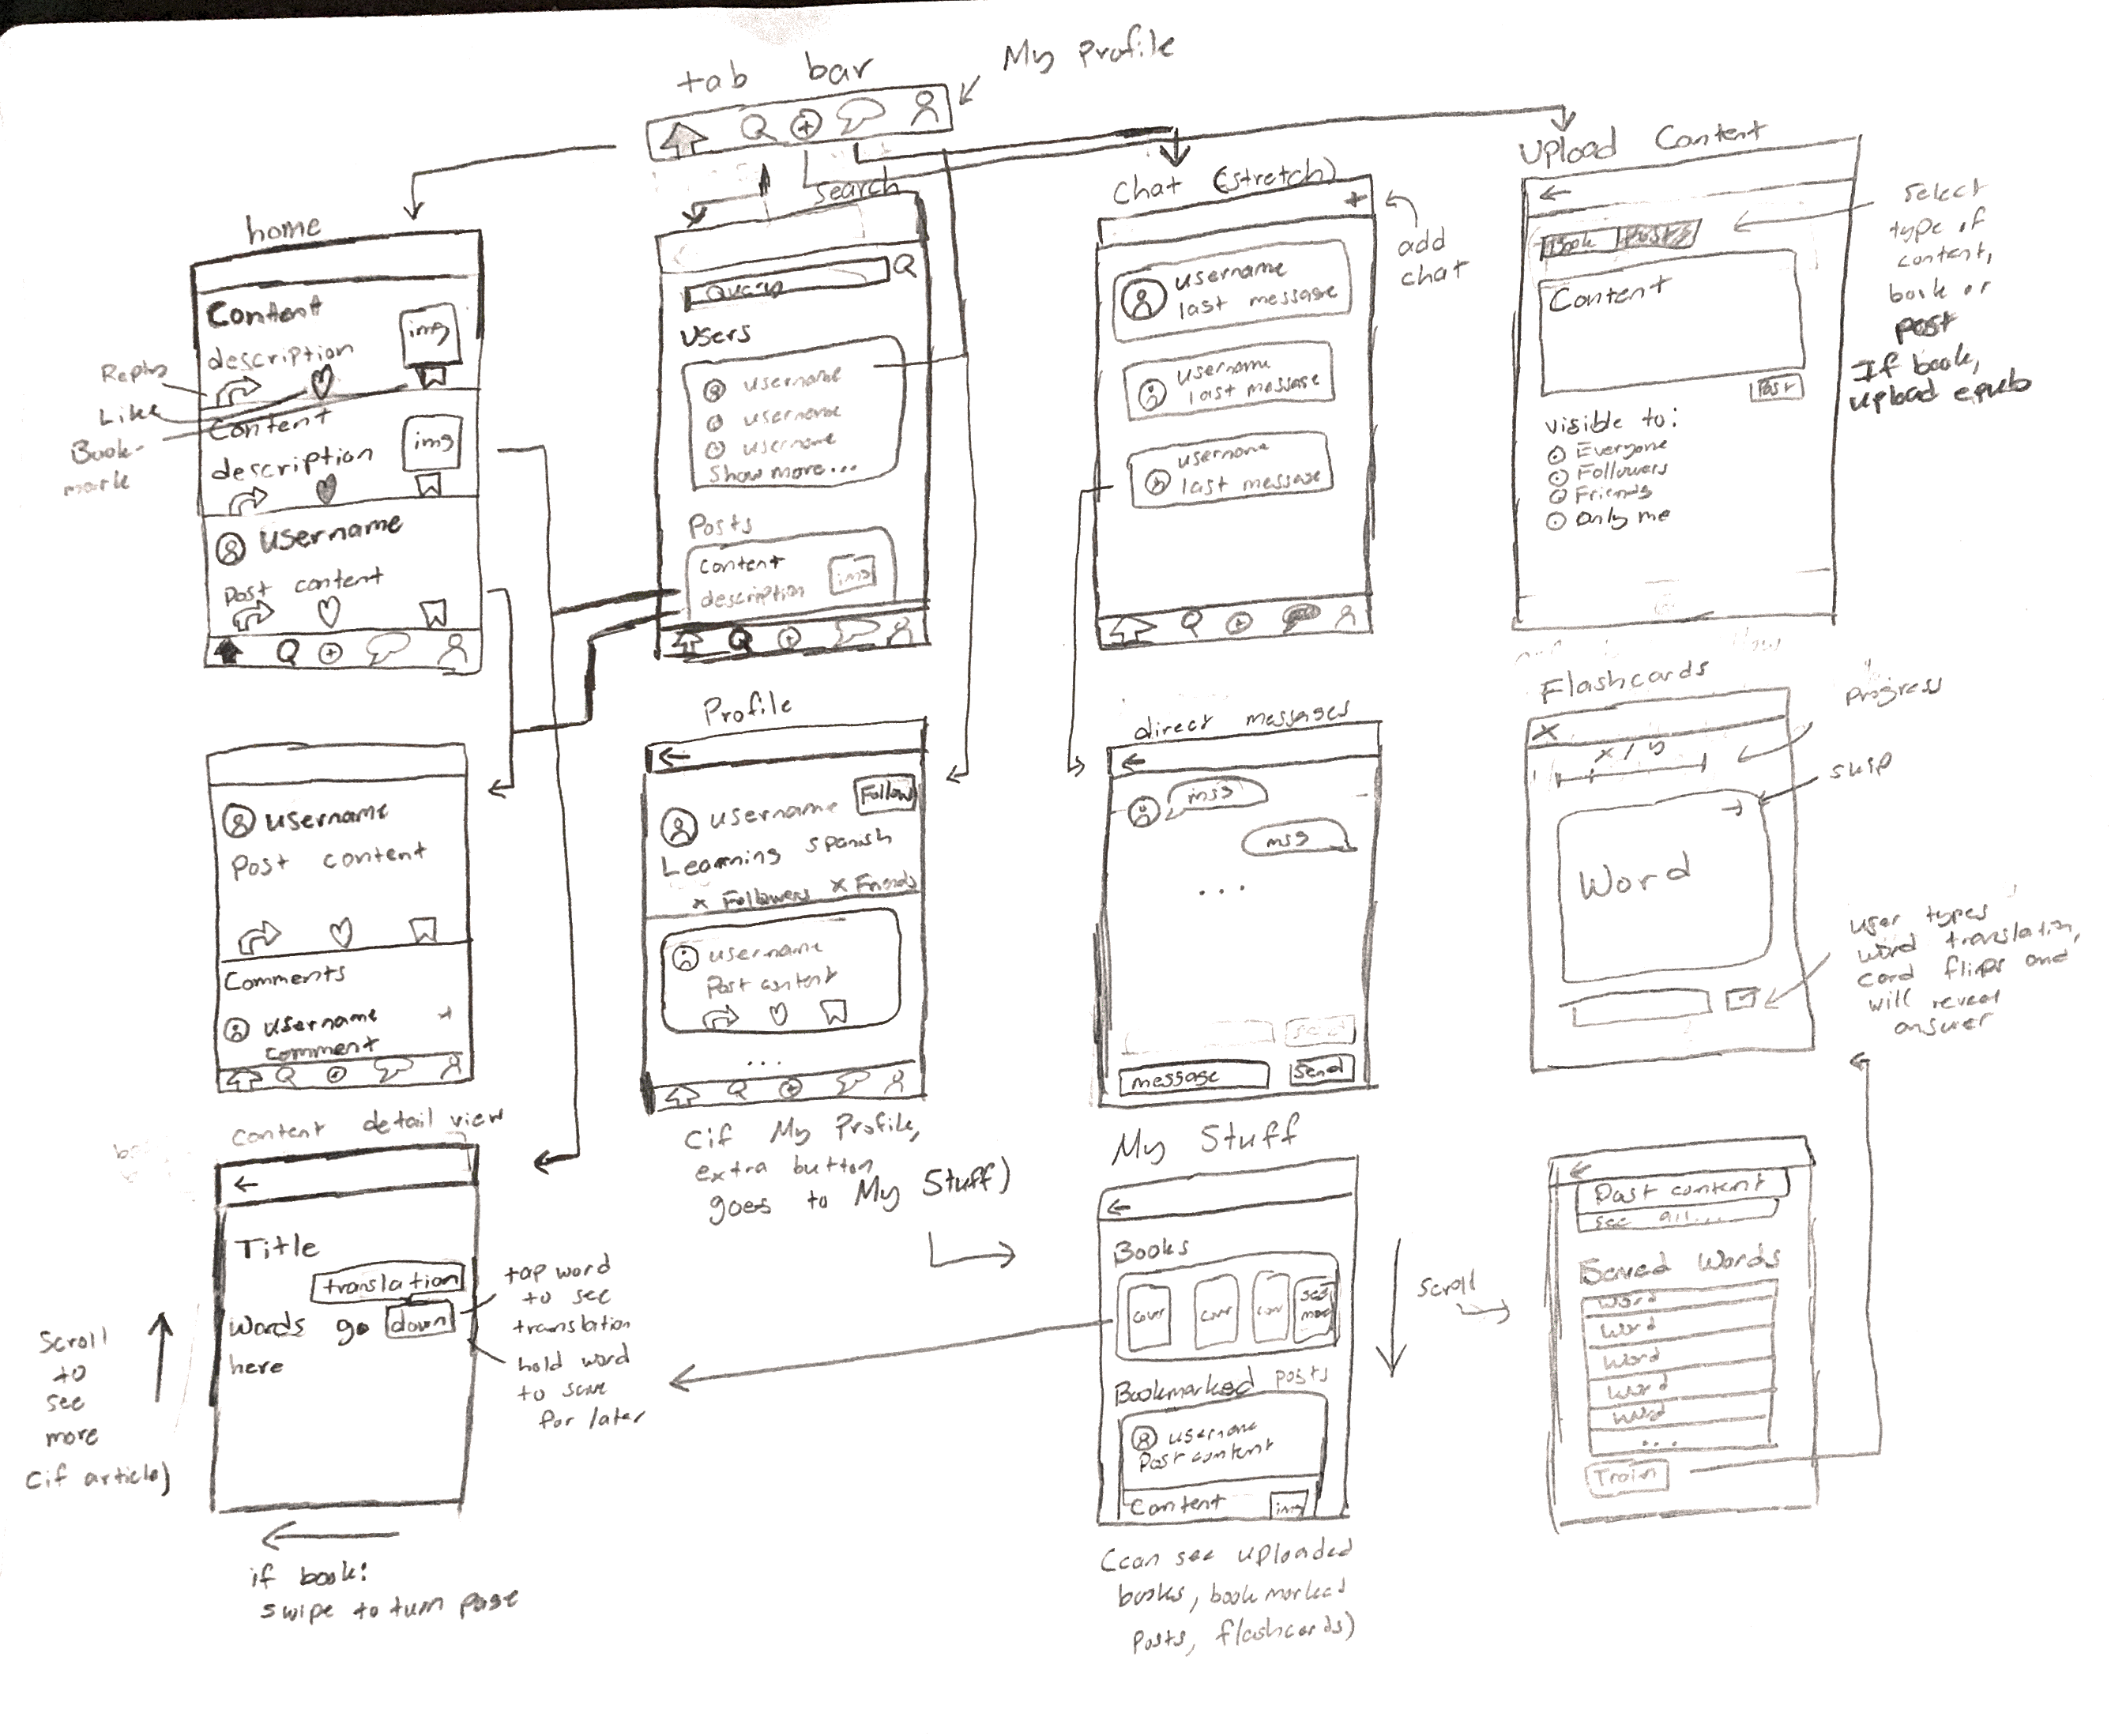 tab bar
My Profile
home
Content
description
img
Reply
Like
Book-
mark
Content
description
img
username
Post content
search
Query
Users
username
username
username
Show more...
Posts
Content
description
img
Chat (stretch)
+
add
chat
username
last message
username
last message
username
last message
Upload Content
Book Posts
Content
Post
visible to:
Everyone
Followers
Friends
only me
select
type of
content,
book or
post
If book,
upload epub
username
Post content
Comments
username
comment
Profile
username
Follow
Learning spanish
x Followers x Friends
username
Post content
...
(if My Profile,
extra button
goes to My Stuff)
direct messages
msg
msg
...
send
message
send
Flashcards
X
x / y
progress
skip
Word
user types
word translation,
card flips and
will reveal
answer
content detail view
Title
translation
Words go down
here
tap word
to see
translation
hold word
to save
for later
Scroll
to
see
more
(if article)
if book:
swipe to turn page
My Stuff
Books
cover
cover
cov
see
more
Bookmarked posts
username
Post content
Content
img
scroll
(can see uploaded
books, bookmarked
posts, flashcards)
Post content
see all...
Saved Words
word
word
word
word
word
...
Train